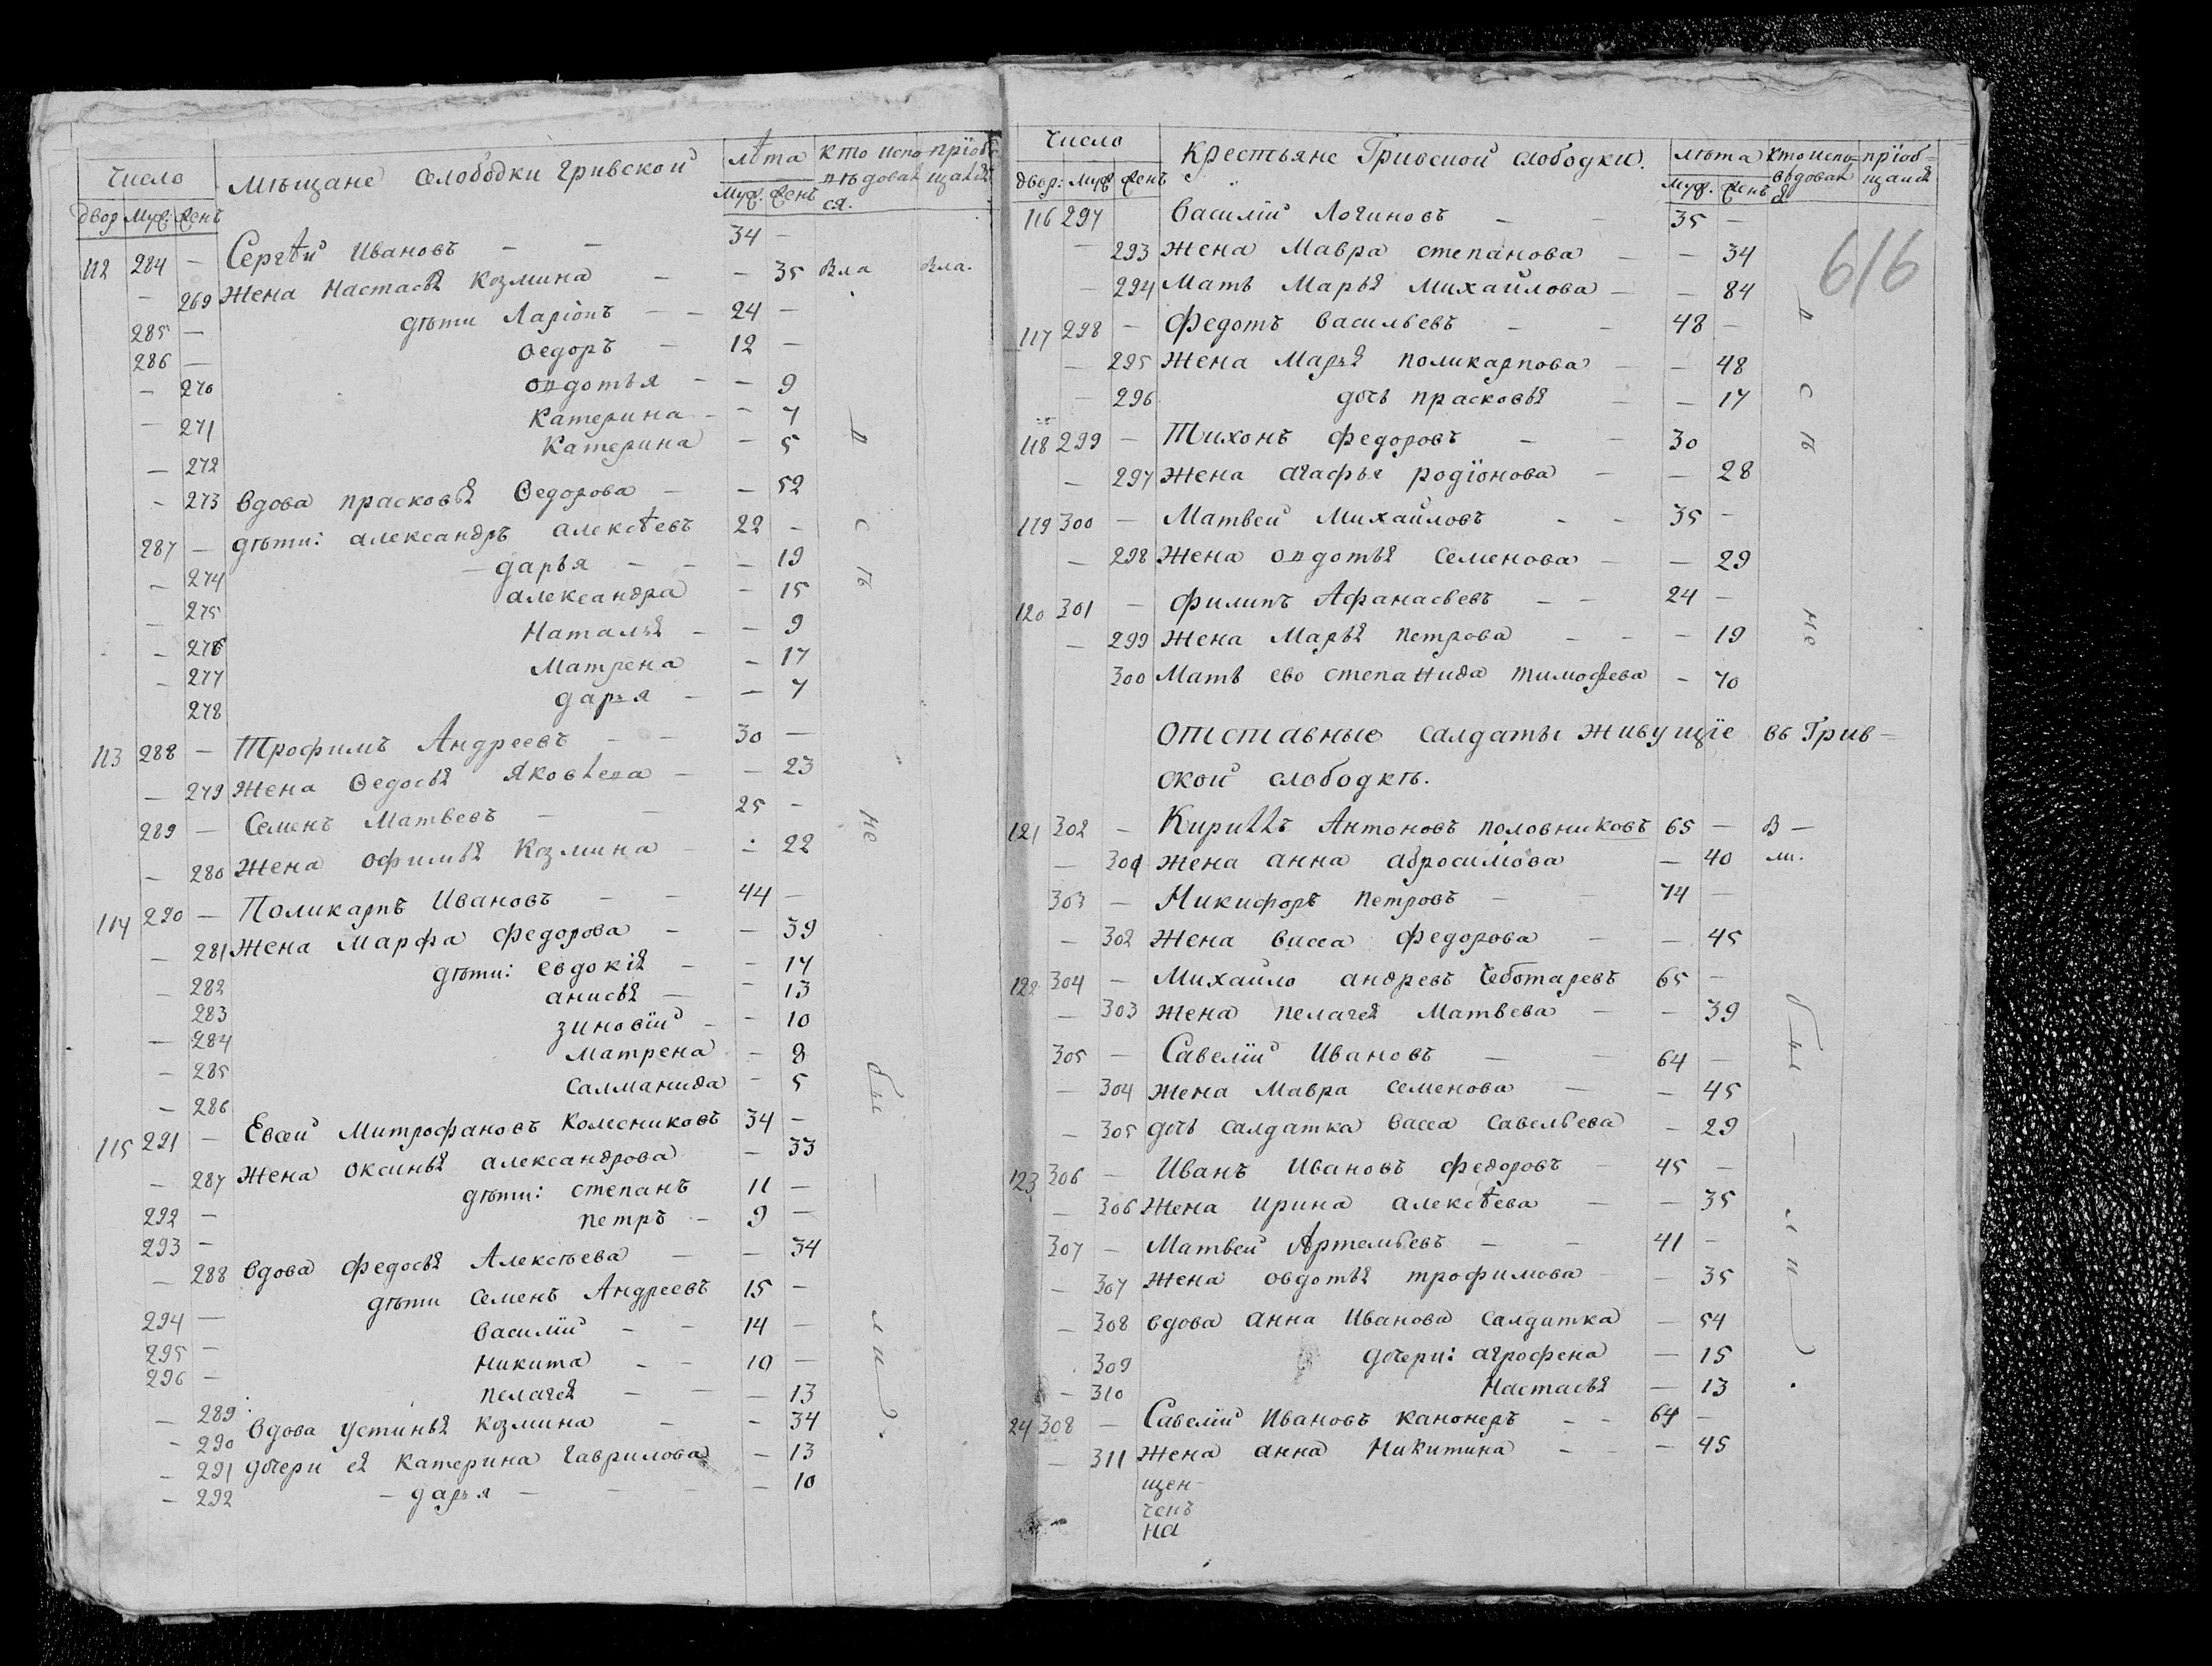 Число Мѣщане Слободки Гривской Лѣта кто испо- пріоб-
двор Муж: Женъ Муж. Женъ вѣдовал ся. щался
112 284 — Сергѣй Ивановъ — — 34 —
— 269 Жена Настасья Козмина — — 35 Вла Вла.
285 — дѣти Ларіонъ — — 24 —
286 — Ѳедоръ — 12 —
— 270 Овдотья — — 9
— 271 Катерина — — 7
— 272 Катерина — 5
— 273 Вдова Прасковья Ѳедорова — — 52
287 — дѣти: Александръ Алексѣевъ 22 —
— 274 — дарья — — — 19
— 275 Александра — 15
— 276 Наталья — — 9
— 277 Матрена — 17
278 дарья — — 7
113 288 — Трофимъ Андреевъ — — 30 —
— 279 Жена Ѳедосья Яковлева — — 23
289 — Семенъ Матвеевъ — — 25 —
— 280 Жена Офимья Козмина — — 22
114 290 — Поликарпъ Ивановъ — — 44 —
— 281 Жена Марфа Федорова — — 39
— 282 дѣти: Евдокія — — 17
283 анисья — — 13
— 284 зиновіи — — 10
— 285 Матрена — 8
— 286 Салманида — 5
115 291 — Евсей Митрофановъ Колесниковъ 34 —
— 287 Жена Оксинья Александрова — 33
292 — дѣти: степанъ 11 —
293 — петръ — 9 —
— 288 Вдова Федосья Алексѣева — — 34
294 — дѣти Семенъ Андреевъ 15 —
295 — Василій — — 14 —
296 — Никита — — 10 —
— 289 Пелагея — — — 13
— 290 Вдова Устинья Козмина — — 34
— 291 дочери ея Катерина Гаврилова — 13
— 292 — дарья — — — — 10
в с ѣ не бы — ли
Число Крестьяне Гривской слободки. Лѣта кто испо- пріоб-
двор: Муж Женъ Муж. Женъ вѣдовался щался
116 297 Василій Логиновъ — — 35 —
— 293 Жена Мавра степанова — — 34
— 294 Мать Марья Михайлова — — 84
117 298 — Федотъ Васильевъ — — 48 —
— 295 Жена Марья поликарпова — — 48
— 296 дочь прасковья — — 17
118 299 — Тихонъ Федоровъ — — 30
— 297 Жена агафья родіонова — — 28
119 300 — Матвей Михайловъ — — 35 —
— 298 Жена овдотья Семенова — — 29
120 301 — Филипъ Афанасьевъ — — 24 —
— 299 Жена Марья Петрова — — — 19
300 Мать ево степанида тимофева — 70
отставные салдаты живущіе въ Грив-
ской слободкѣ.
121 302 — Кириллъ Антоновъ половниковъ 65 — в —
— 301 Жена анна абросимова — 40 ли.
303 — Никифоръ петровъ — — 74 —
— 302 Жена васса федорова — — 45
122 304 — Михайло андревъ Чеботаревъ 65 —
— 303 Жена пелагея Матвеева — — 39
305 — Савелій Ивановъ — — 64 —
— 304 Жена Мавра семенова — — 45
— 305 дочь салдатка васса савельева — 29
123 306 — Иванъ Ивановъ федоровъ — 45 —
— 306 Жена Ирина алексѣева — — 35
307 — Матвей Артемьевъ — — 41 —
— 307 Жена овдотья трофимова — — 35
— 308 вдова анна Иванова салдатка — 54
309 дочери: агрофена — 15
— 310 Настасья — 13
24 308 — Савелій Ивановъ канонеръ — — 64 —
— 311 Жена анна Никитина — — — 45
щен-
ченъ
на
616
в с ѣ не бы — ли